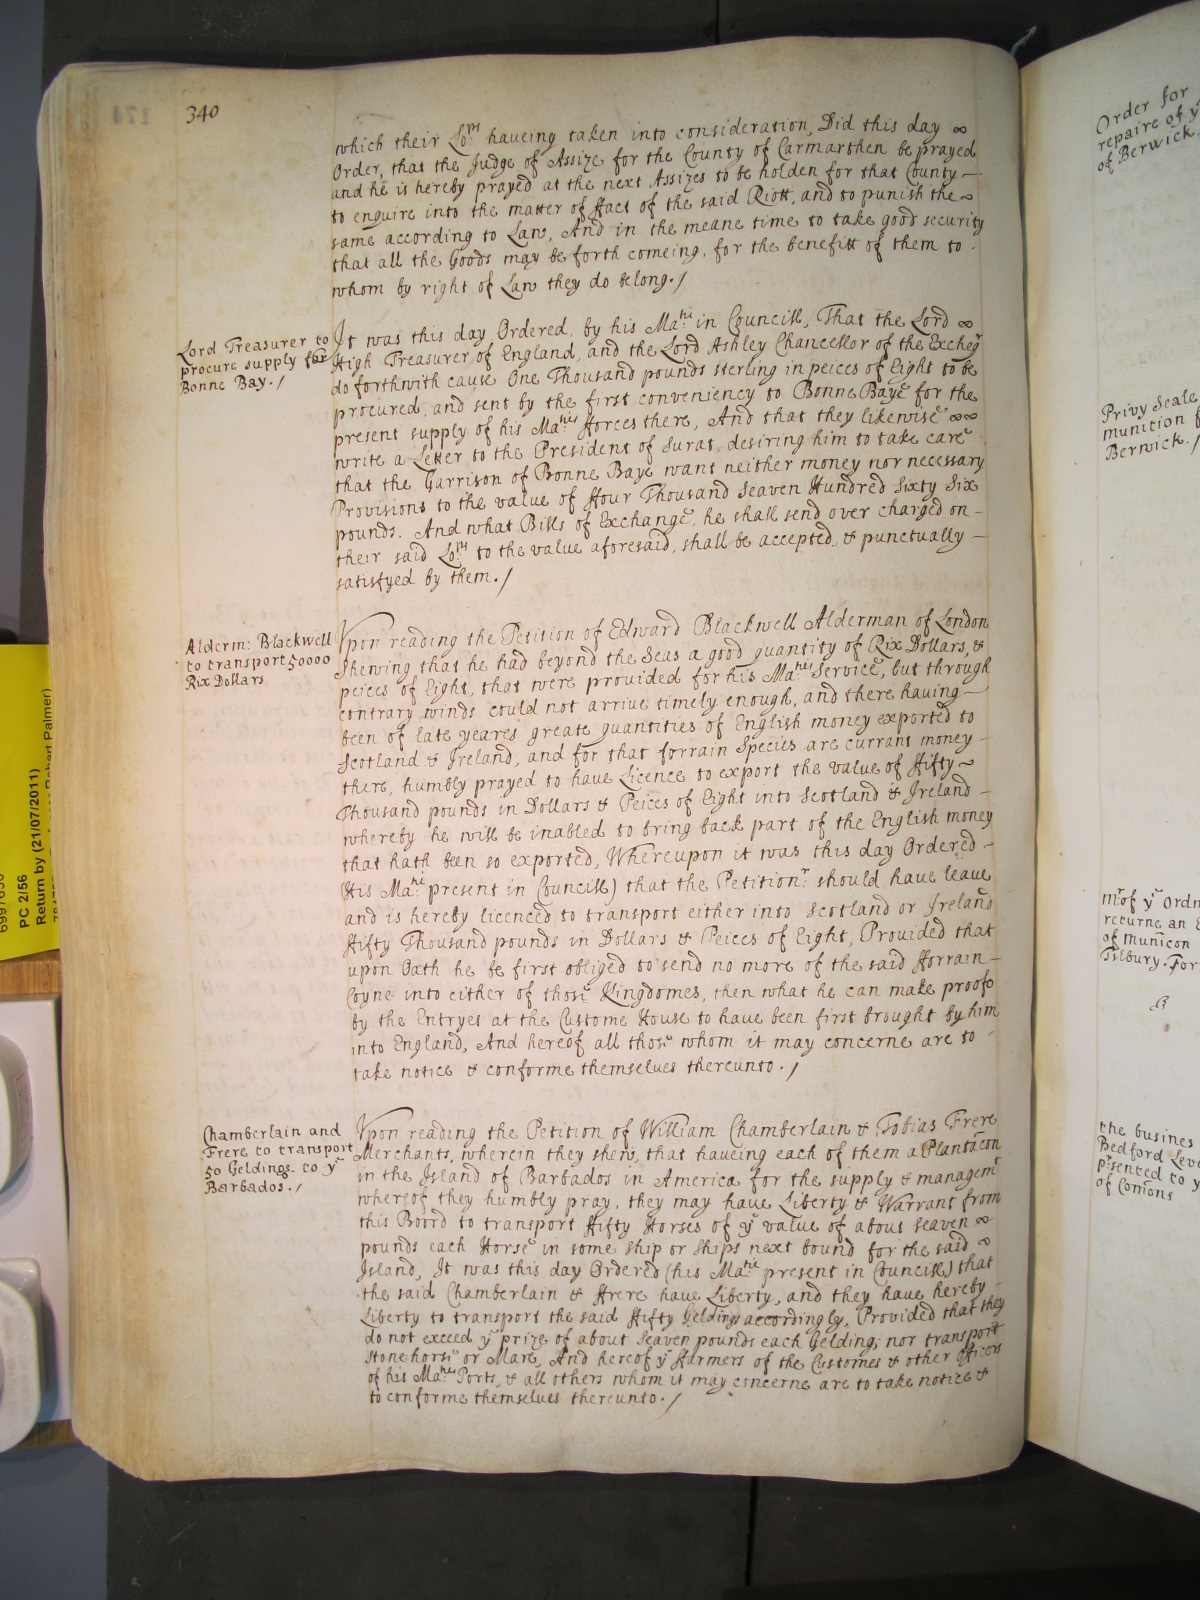 340
which their Lo:ps haveing taken into consideration, Did this day
Order, that the Judge of Assize for the County of Carmarthen be prayed
and he is hereby prayed at the next Assizes to be holden for that County –
to enquire into the matter of ffact of the said Riott, and to punish the
same according to Law, And in the meane time to take good security
that all the Goods may be forth comeing, for the benefitt of them to
whom by right of Law they do belong./
Lord Treasurer to
procure supply for
Bonne Bay./
It was this day Ordered, by his Ma:tie in Councill, That the Lord
High Treasurer of England, and the Lord Ashley Chancellor of the Excheqr
do forthwith cause One Thousand pounds sterling in peices of Eight to be
procured, and sent by the first conveniency to Bonne Baye for the
present supply of his Ma:ties fforces there, And that they likewise
write a Letter to the President of Surat, desiring him to take care
that the Garrison of Bonne Baye want neither money nor necessary
Provisions to the value of ffour Thousand Seaven Hundred Sixty Six
pounds. And what Bills of Exchange, he shall send over charged on –
their said Lo:ps to the value aforesaid, shall be accepted, & punctually –
satisfyed by them./
Alderm: Blackwell
to transport 50000
Rix Dollars
Vpon reading the Petition of Edward Blackwell Alderman of London
Shewing that he had beyond the Seas a good quantity of Rix Dollars, &
peices of Eight, that were provided for his Ma:ties Service, but through
contrary winds could not arrive timely enough, and there having –
been of late yeares greate quantities of English money exported to
Scotland & Ireland, and for that forrain Species are currant money –
there, humbly prayed to have Licence to export the value of ffifty –
Thousand pounds in Dollars & Peices of Eight into Scotland & Ireland –
whereby he will be inabled to bring back part of the English money
that hath been so exported, Whereupon it was this day Ordered –
(His Ma:tie present in Councill) that the Petition:r should have leave
and is hereby licenced to transport either into Scotland or Ireland
ffifty Thousand pounds in Dollars & Peices of Eight, Provided that
upon Oath he be first obliged to send no more of the said fforrain –
Coyne into either of those Kingdomes, then what he can make proofe
by the Entryes at the Custome House to have been first brought by him
into England, And hereof all those whom it may concerne are to –
take notice & conforme themselves thereunto./
Chamberlain and
Frere to transport
50 Geldings to ye
Barbados./
Vpon reading the Petition of William Chamberlain & Tobias Frere
Merchants, wherein they shew, that haveing each of them a Plantacon
in the Island of Barbados in America for the supply & managemt
whereof they humbly pray, they may have Liberty & Warrant from
this Board to transport ffifty Horses of ye value of about seaven
pounds each Horse in some ship or ships next bound for the said
Island, It was this day Ordered (his Ma:tie present in Councill) that
the said Chamberlain & ffrere have Liberty, and they have hereby –
Liberty to transport the said ffifty Geldings accordingly, Provided that they
do not exceed ye prize of about Seaven pounds each Gelding; nor transport
Stonehorse or Mare, And hereof ye ffarmers of the Customes & other Officers
of his Ma:ties Ports, & all others whom it may concerne are to take notice &
to conforme themselves thereunto./
Order for
repaire of ye
of Berwick
Privy Seale
munition f
Berwick./
mr of ye Ordn
returne an E
of Municon
Tilbury. For
the busines
Bedford Leve
prsented to y
of Comons
PC 2/56
Return by (21/07/2011)
Robert Palmer)